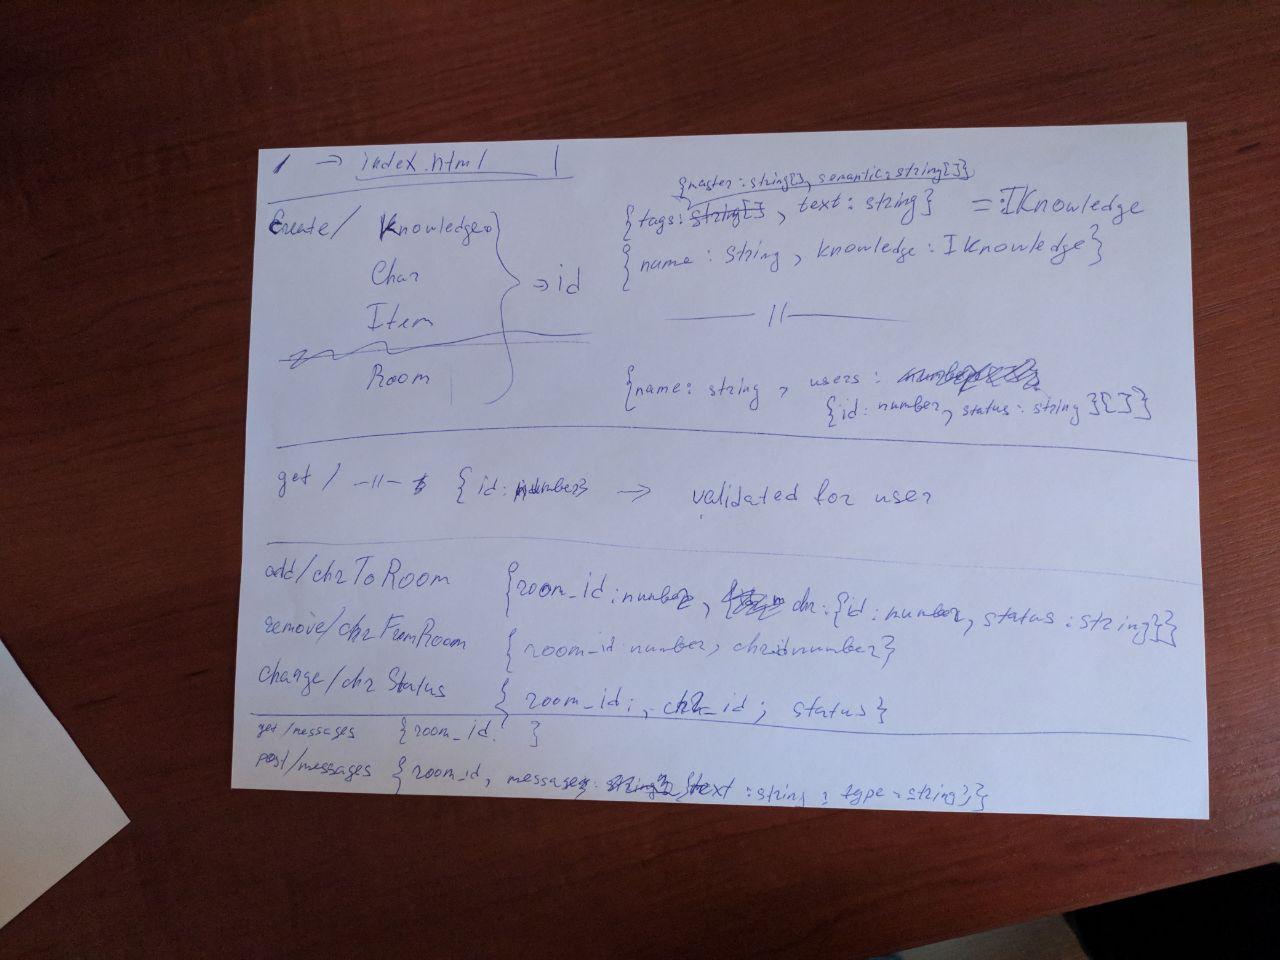 / → index.html
{master: string[], semantic: string[]}
create/ Knowledge {tags: string[], text: string} = IKnowledge
Char → id {name: string, knowledge: IKnowledge}
Item —//—
Room {name: string, users:
{id: number, status: string}[]}
get / -//- {id: number} → validated for user
add/chrToRoom {room_id: number, chr: {id: number, status: string}}
remove/chrFromRoom {room_id number, chrid number}
change/chrStatus {room_id; chr_id; status}
get/messages {room_id }
post/messages {room_id, message: text: string, type: string}}